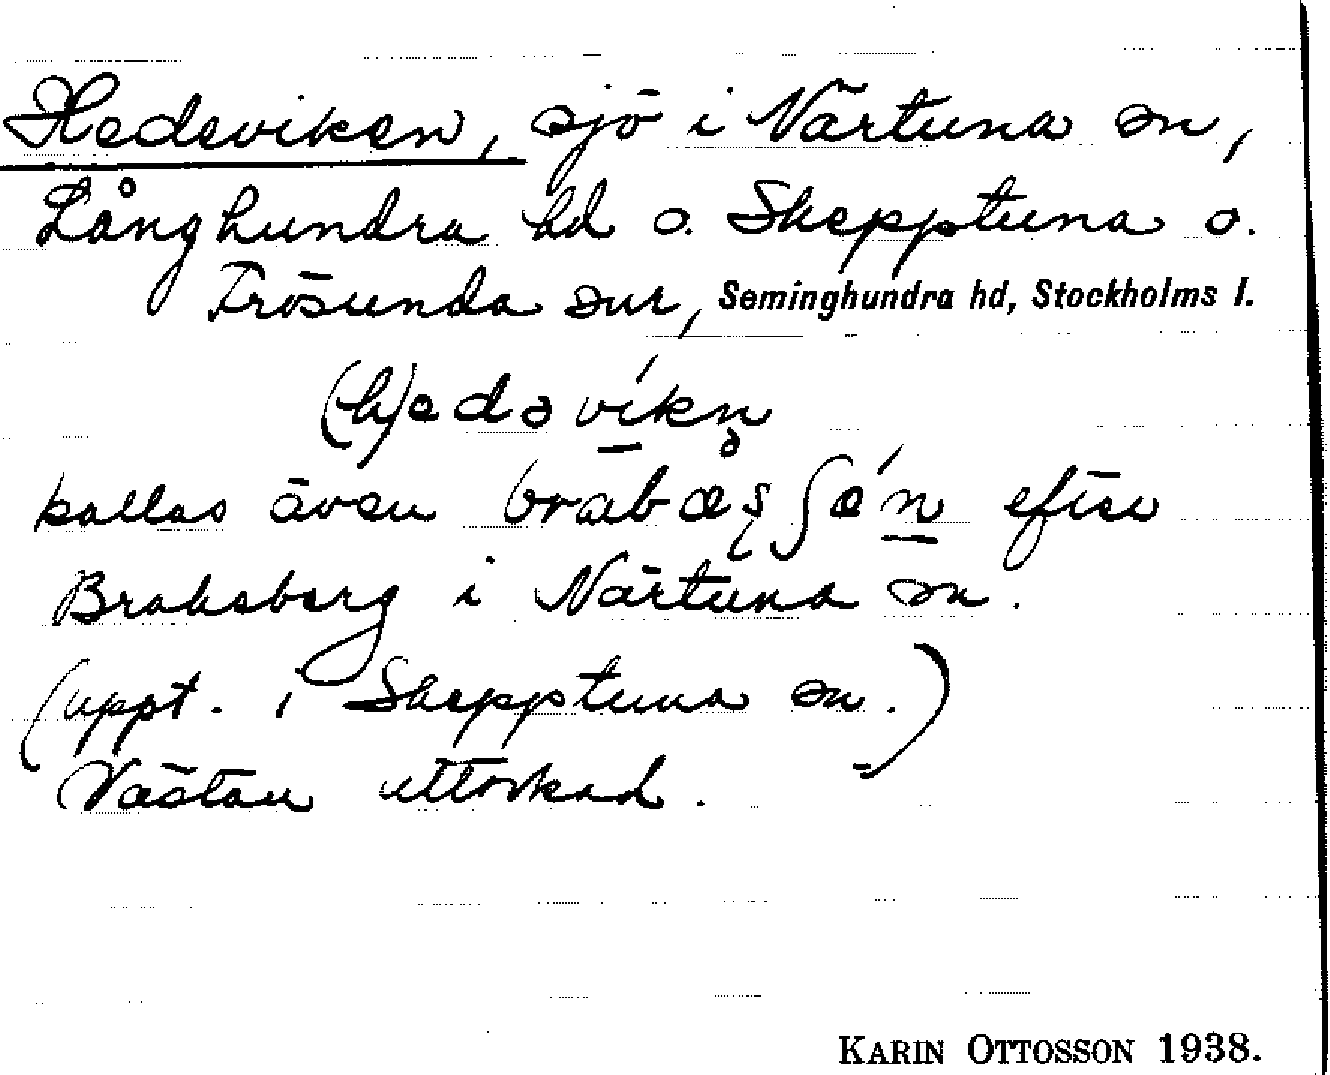 Hedeviken, sjö i Närtuna sn,
Långhundra hd o. Skepptuna o.
Frösunda snr, Seminghundra hd, Stockholms l.
(h)edəvíkn̥
kallas även brabæʂʃǿn efter
Braheberg i Närtuna sn.
(uppt. i Skepptuna sn.)
Nästan uttorkad.
KARIN OTTOSSON 1938.